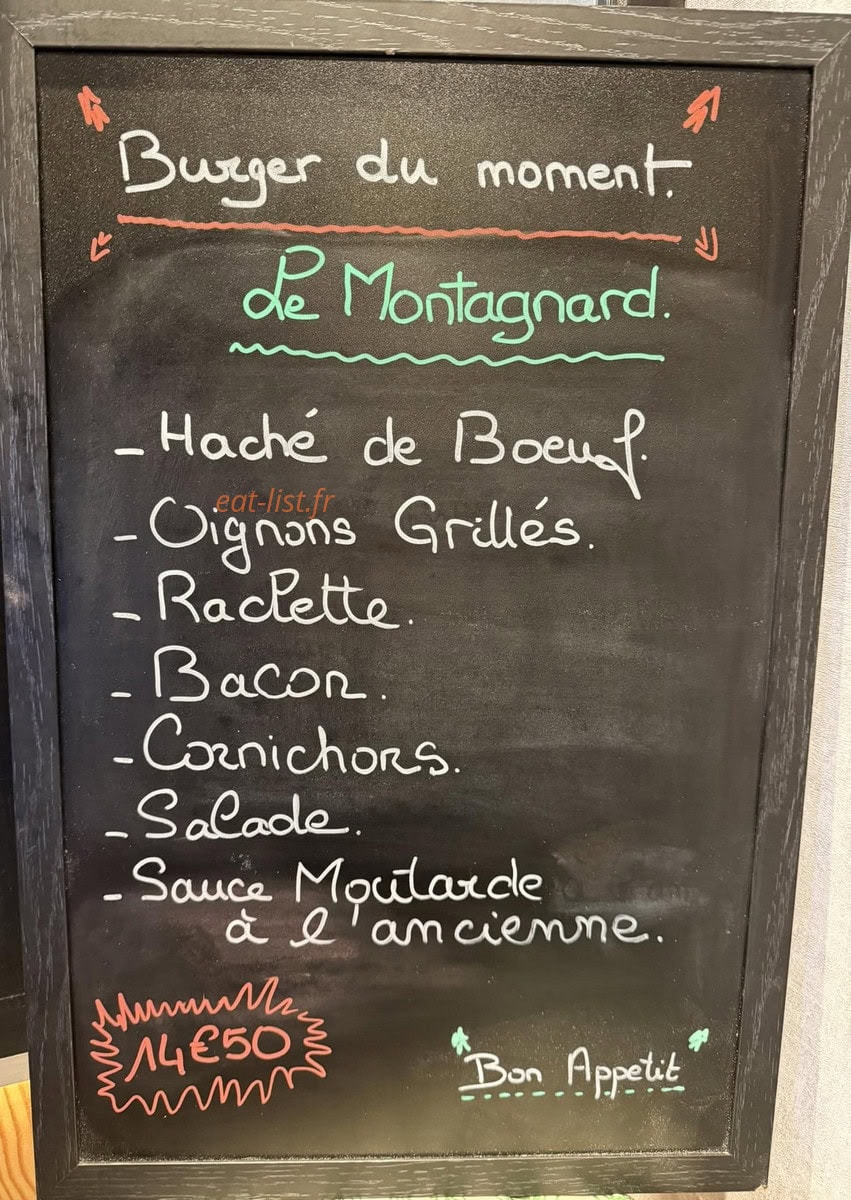 Burger du moment.
Le Montagnard.
- Haché de Boeuf.
eat-list.fr
- Oignons Grillés.
- Raclette.
- Bacon.
- Cornichons.
- Salade.
- Sauce Moutarde
à l'ancienne.
14€50
Bon Appetit